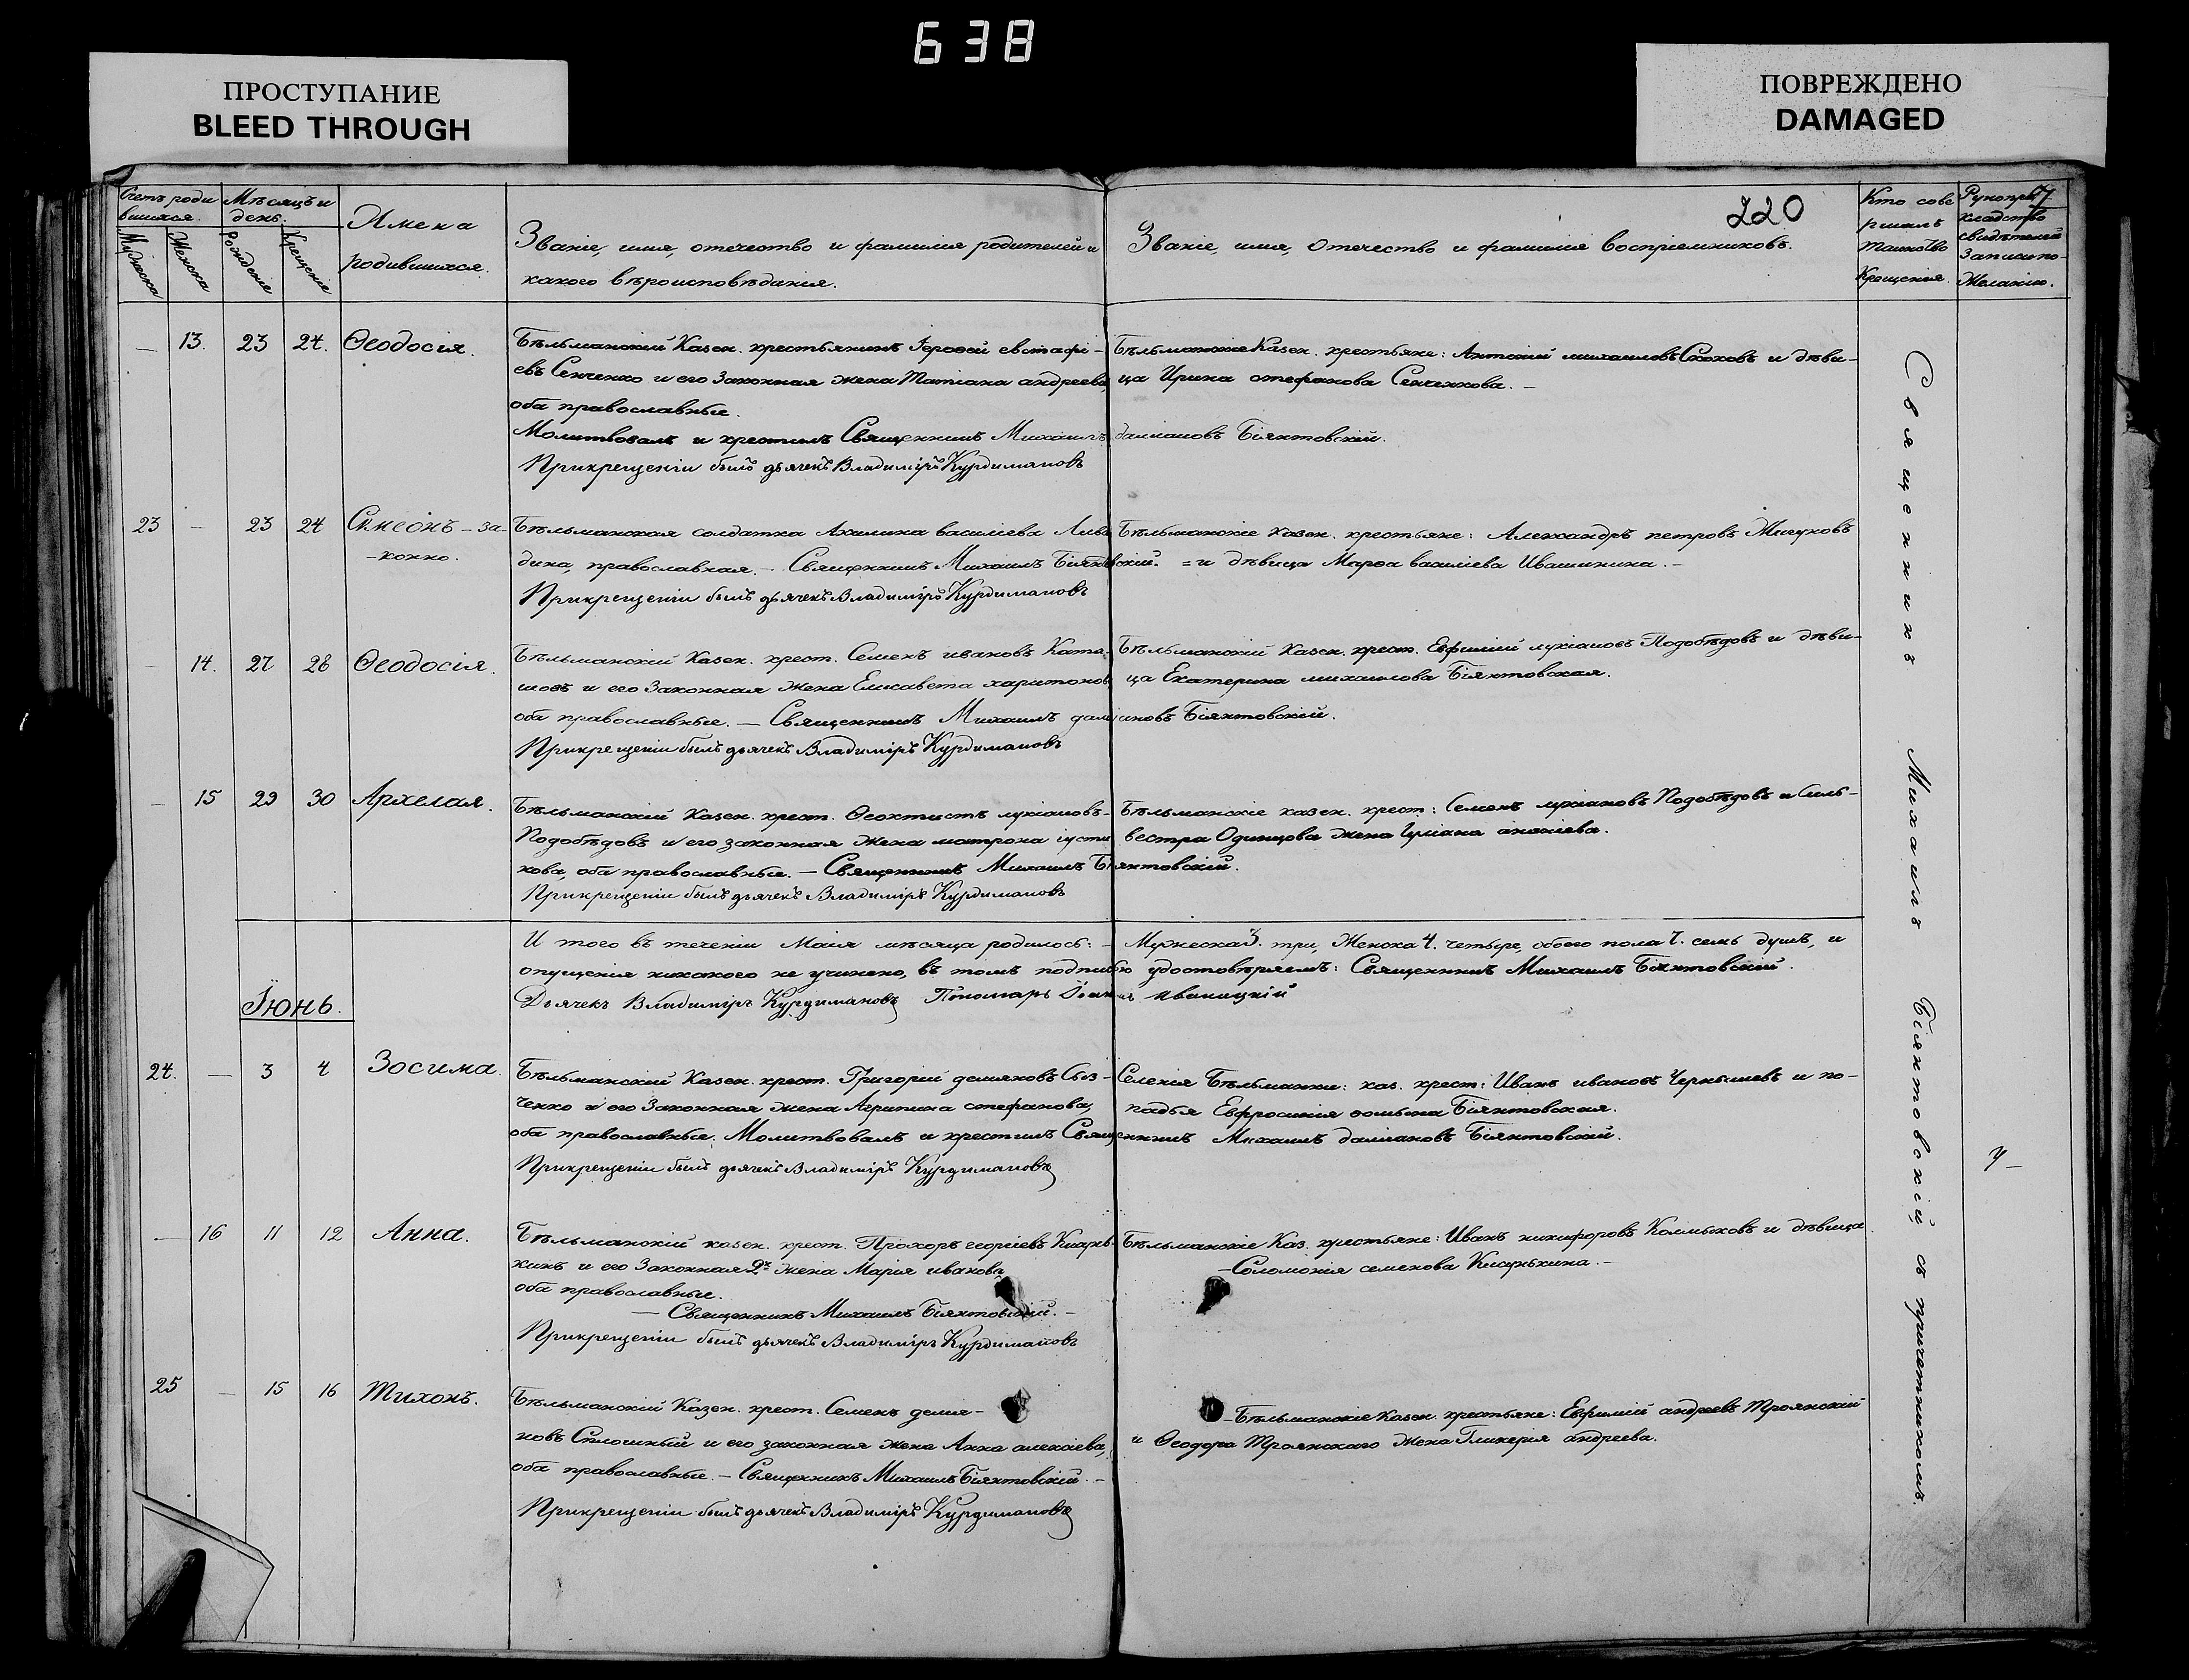 638
ПРОСТУПАНИЕ
BLEED THROUGH
ПОВРЕЖДЕНО
DAMAGED
220
Счетъ роди
вшихся.
Мѣсяцъ и
день.
Мужеска
Женска
Рожденіе
Крещеніе
Имена
родившихся.
Званіе, имя, отечество и фамилія родителей и
какого вѣроисповѣданія.
Званіе, имя, отечество и фамилія воспріемниковъ.
Кто сове
ршалъ
таинство
Крещенія.
Рукопри
кладство
свидѣтелей
записи по
желанію.
— 13. 23 24. Ѳеодосія.
Бѣльманскій Казен. крестьянинъ Іероѳей евстафі-
евъ Сенченко и его законная жена Татіана андреева,
оба православные.
Молитвовалъ и крестилъ Священникъ Михаилъ даміановъ Біянтовскій.
Прикрещеніи былъ дьячекъ Владиміръ Курдимановъ
Бѣльманскіе Казен. крестьяне: Антоній михаиловъ и дѣви-
ца Ирина стефанова Сенченкова. —
23 — 23 24 Симеонъ – за-
-конно.
Бѣльманская солдатка Акилина василіева
дина, православная. — Священникъ Михаилъ Біянтовскій.
Прикрещеніи былъ дьячекъ Владиміръ Курдимановъ
Бѣльманскіе казен. крестьяне: Александръ петровъ
= и дѣвица Марѳа василіева Ивашинина. —
— 14. 27 28 Ѳеодосія.
Бѣльманскій Казен. крест. Семенъ ивановъ Ката-
шовъ и его законная жена Елисавета харитонова,
оба православные. — Священникъ Михаилъ даміановъ Біянтовскій.
Прикрещеніи былъ дьячекъ Владиміръ Курдимановъ
Бѣльманскій Казен. крест. Евфимій лукіановъ Подобѣдовъ и дѣви-
ца Екатерина михаилова Біянтовская.
— 15 29 30 Архелая.
Бѣльманскій Казен. крест. Ѳеоктистъ лукіановъ-
Подобѣдовъ и его законная жена матрона іусти
нова, оба православные. — Священникъ Михаилъ Біянтовскій.
Прикрещеніи былъ дьячекъ Владиміръ Курдимановъ
Бѣльманскіе казен. крест: Семенъ лукіановъ Подобѣдовъ и Силь-
вестра Одинцова жена Іуліана ананіева.
И того въ теченіи Маія мѣсяца родилось: — Мужеска 3. три, Женска 4. четыре, обоего пола 7. семь душъ, и
опущенія никакого не учинено, въ томъ подписью удостовѣряемъ: Священникъ Михаилъ Біянтовскій.
Дьячекъ Владиміръ Курдимановъ Пономарь Іоаннъ Иваницкій
Іюнь.
24. — 3 4 Зосима.
Бѣльманскій Казен. крест. Григорій деміановъ Сыз-
ченко и его законная жена Агрипина стефанова,
оба православные. Молитвовалъ и крестилъ Священникъ Михаилъ даміановъ Біянтовскій.
Прикрещеніи былъ дьячекъ Владиміръ Курдимановъ
Селенія Бѣльманки: каз. крест: Иванъ ивановъ Чернышевъ и по-
падья Евфросинія Біянтовская.
— 16 11 12 Анна.
Бѣльманскій казен. крест. Прохоръ георгіевъ
кинъ и его законная 2я жена Марія иванова,
оба православные.
— Священникъ Михаилъ Біянтовскій. —
Прикрещеніи былъ дьячекъ Владиміръ Курдимановъ
Бѣльманскіе Каз. крестьяне: Иванъ никифоровъ Колмыковъ и дѣвица
— Соломонія семенова —
25 — 15 16 Тихонъ.
Бѣльманскій Казен. крест. Семенъ демія-
новъ Сплошный и его законная жена Анна алексіева,
оба православные. — Священникъ Михаилъ Біянтовскій. —
Прикрещеніи былъ дьячекъ Владиміръ Курдимановъ
— Бѣльманскіе Казен. крестьяне: Евфимій андреевъ Троянскій
и Ѳеодора Троянскаго жена Гликерія андреева.
Священникъ Михаилъ Біянтовскій съ причетникомъ.